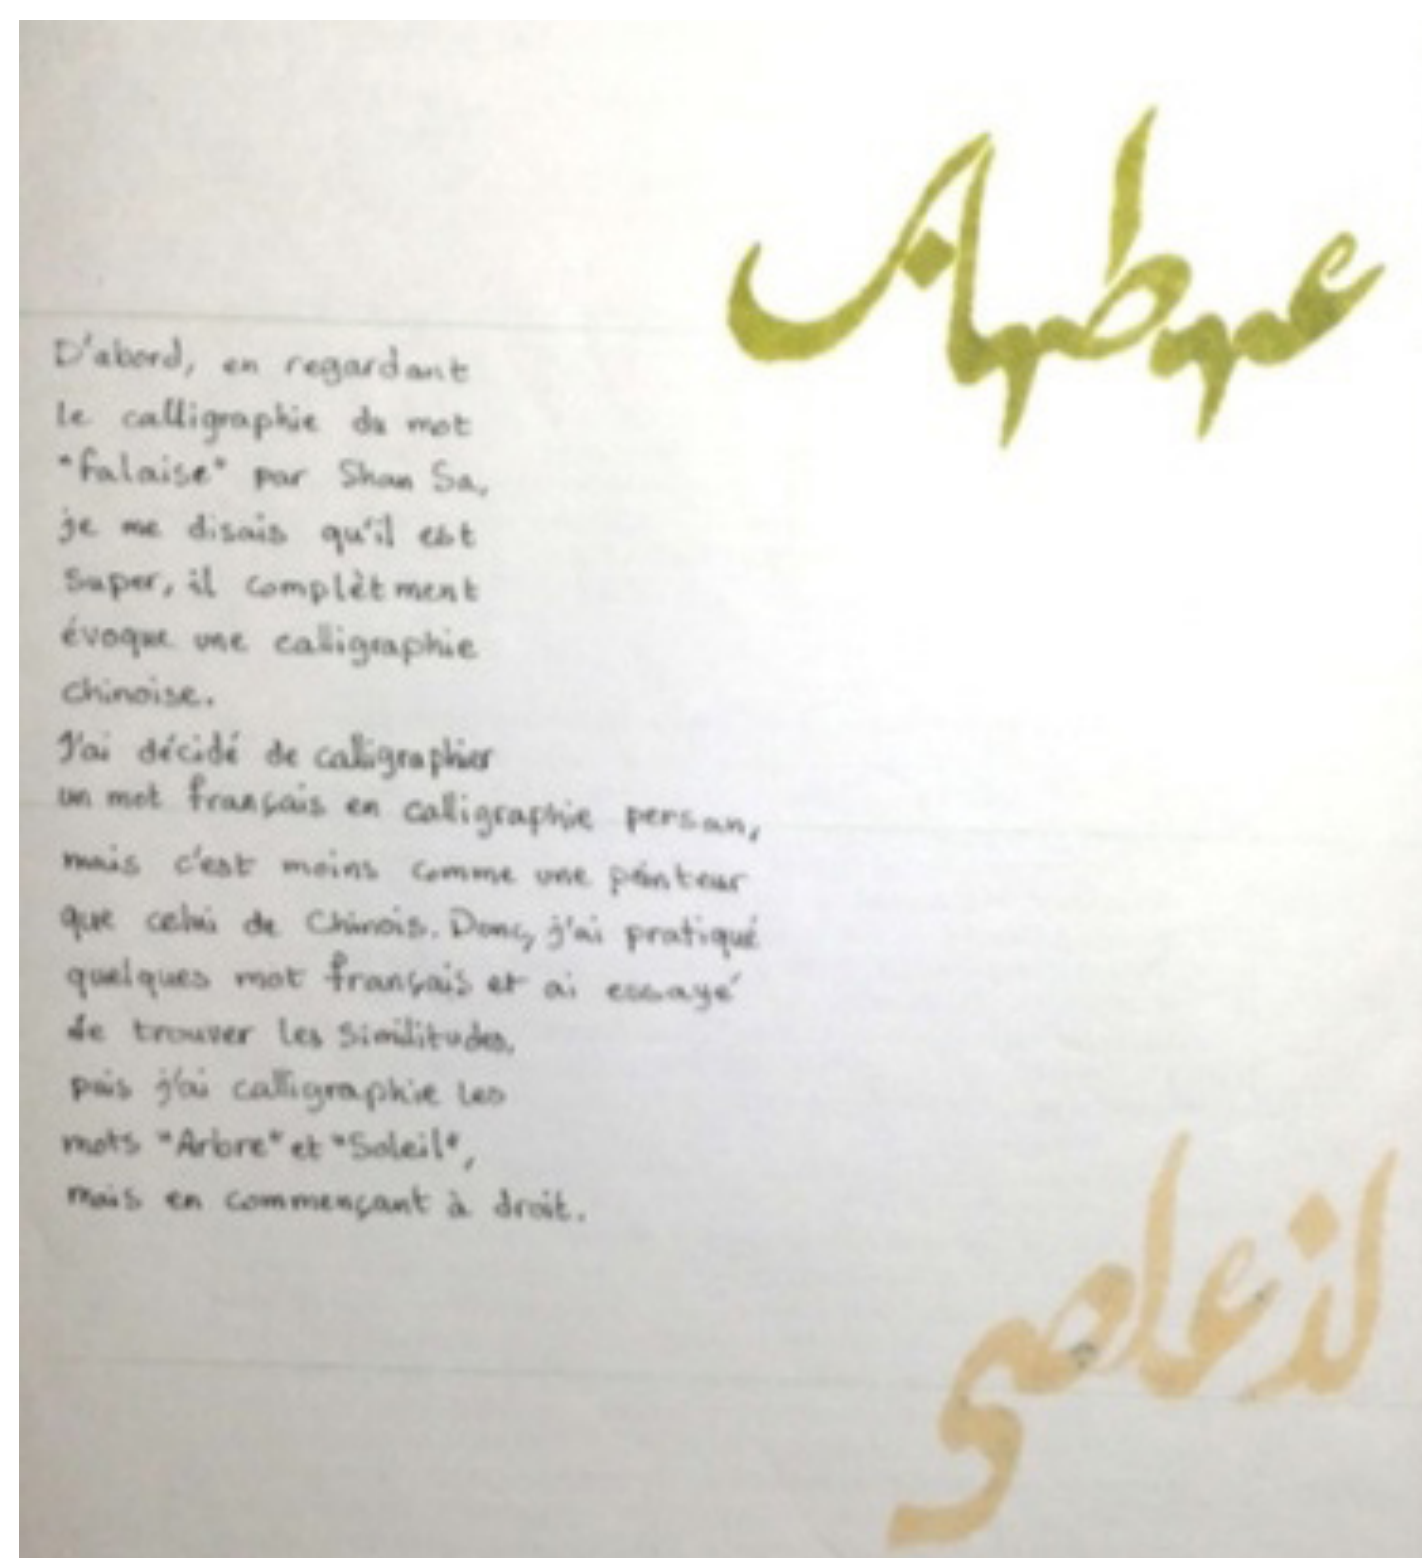 D'abord, en regardant
le calligraphie du mot
"falaise" par Shan Sa,
je me disais qu'il est
super, il complètment
évoque une calligraphie
chinoise.
J'ai décidé de calligraphier
un mot français en calligraphie persan,
mais c'est moins comme une peinteur
que celui de Chinois. Donc, j'ai pratiqué
quelques mot français et ai essayé
de trouver les similitudes,
puis j'ai calligraphie les
mots "Arbre" et "Soleil",
mais en commençant à droit.